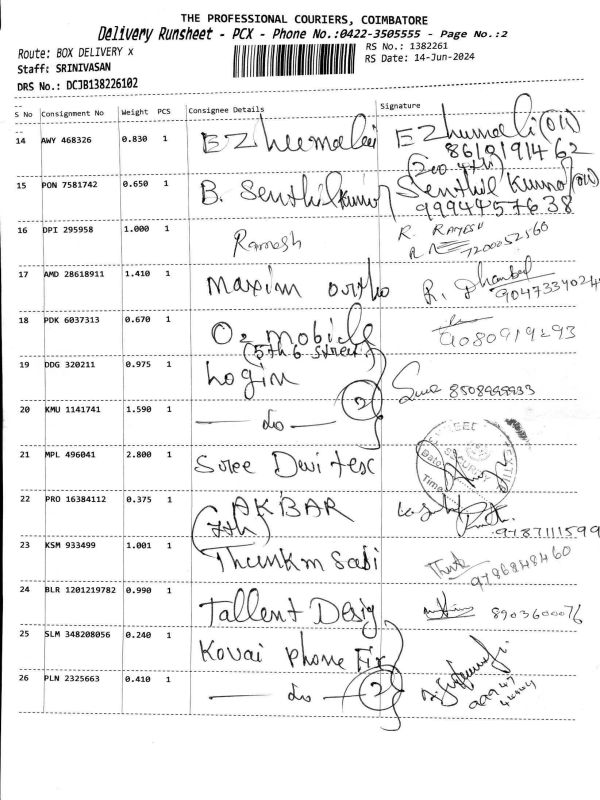 THE PROFESSIONAL COURIERS, COIMBATORE
Delivery Runsheet - PCX - Phone No.:0422-3505555 - Page No.:2
Route: BOX DELIVERY x
RS No.: 1382261
Staff: SRINIVASAN
RS Date: 14-Jun-2024
DRS No.: DCJB138226102
S No Consignment No Weight PCS Consignee Details Signature
14 AWY 468326 0.830 1 EZhumalai EZhumali (OU)
8610191462
15 PON 7581742 0.650 1 B. Senthilkumar Senthil Kumar (OU)
9994457638
16 DPI 295958 1.000 1 Ramesh R. RAMESH
7200052560
17 AMD 28618911 1.410 1 maxim ortho R.
904733402
18 PDK 6037313 0.670 1 O2 mobile
(5th 6 street) 9080919293
19 DDG 320211 0.975 1 Login 8508999933
20 KMU 1141741 1.590 1 — do — (2)
21 MPL 496041 2.800 1 Sree Devi tex
SECURITY
Date
Time
22 PRO 16384112 0.375 1 AKBAR
9787111599
23 KSM 933499 1.001 1 Thunkm Sabi
9796848460
24 BLR 1201219782 0.990 1 Tallent Desig 8903600076
25 SLM 348208056 0.240 1 Kovai Phone Fix
26 PLN 2325663 0.410 1 — do — (2)